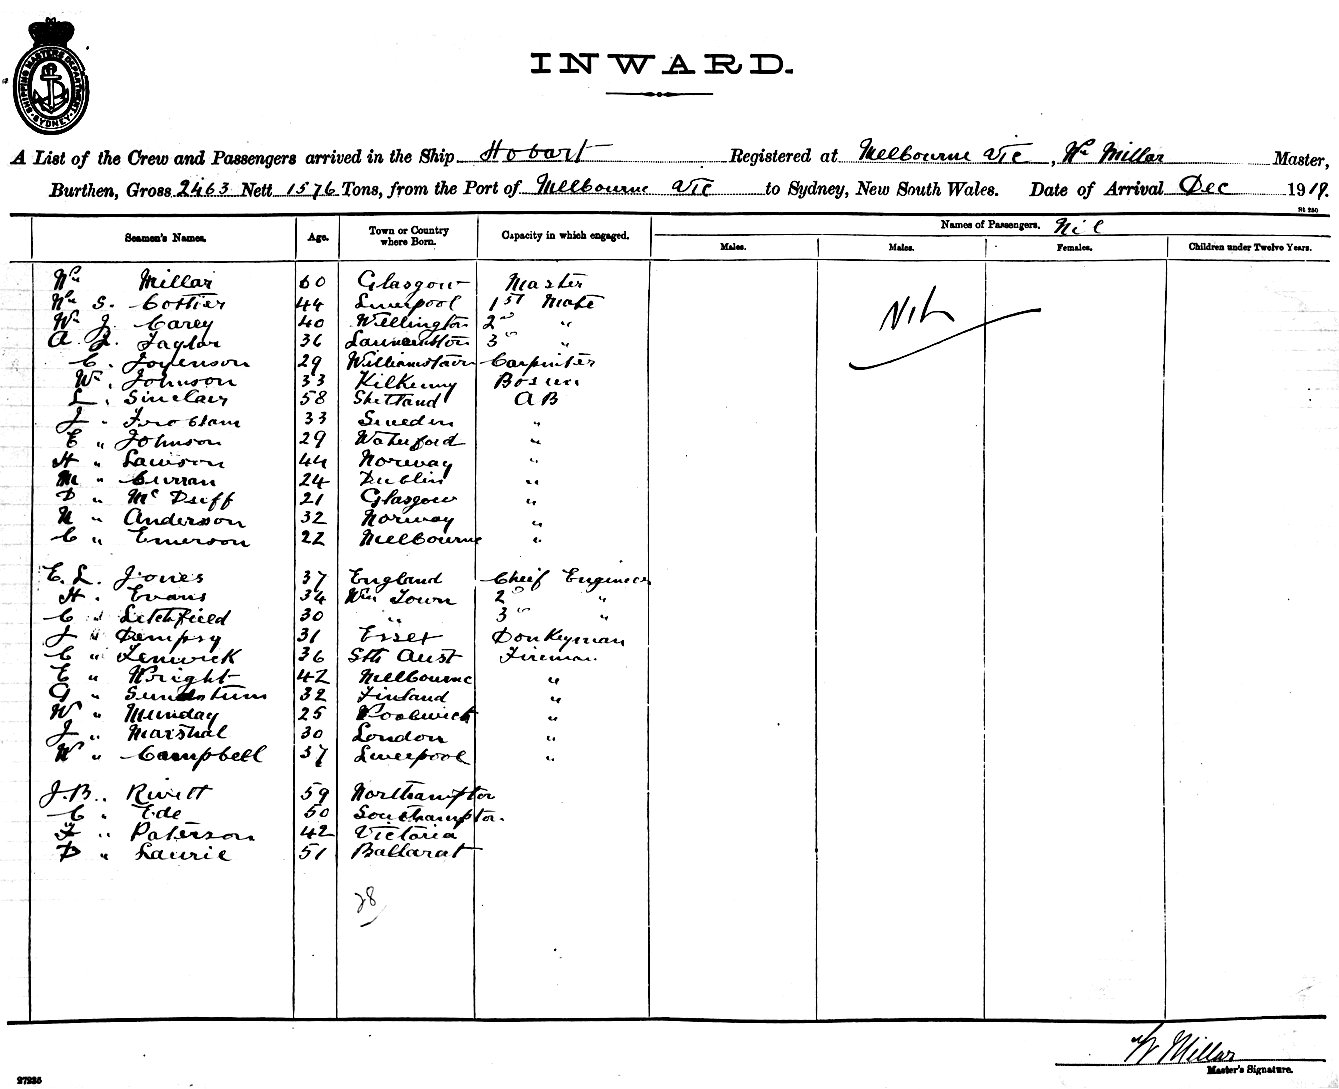 SHIPPING MASTERS DEPARTMENT SYDNEY
INWARD.
A List of the Crew and Passengers arrived in the Ship Hobart Registered at Melbourne Vic, Wm Millar Master,
Burthen, Gross 2463 Nett 1576 Tons, from the Port of Melbourne Vic to Sydney, New South Wales. Date of Arrival Dec 1919.
Seamen's Names. Age. Town or Country where Born. Capacity in which engaged. Names of Passengers. Nil
Males. Males. Females. Children under Twelve Years.
Wm Millar 60 Glasgow Master
Wm S. Cottier 44 Liverpool 1st Mate
Wm J. Carey 40 Wellington 2nd "
A. J. Taylor 36 Launceston 3rd "
Nil
C. Joyenson 29 Williamstown Carpenter
W. Johnson 33 Kilkenny Bosun
L. Sinclair 58 Shetland AB
J. 33 Sweden "
E " Johnson 29 Waterford "
H " Lawson 44 Norway "
M " Curran 24 Dublin "
D " McDuff 21 Glasgow "
N " Anderson 32 Norway "
C " Emerson 22 Melbourne "
E. L. Jones 37 England Chief Engineer
H. Evans 34 Wm Town 2nd "
C " Litchfield 30 " 3rd "
J " Dempsy 31 Essex Donkeyman
C " Fenwick 36 Sth Aust Fireman.
E " Wright 42 Melbourne "
G " Sundstrum 32 Finland "
W " Munday 25 Woolwich "
J " Marshal 30 London "
W " Campbell 37 Liverpool "
J.B. " Rivett 59 Northampton
C " Ede 50 Southampton.
F " Paterson 42 Victoria
D " Laurie 51 Ballarat
28
W Millar
Master's Signature.
27235